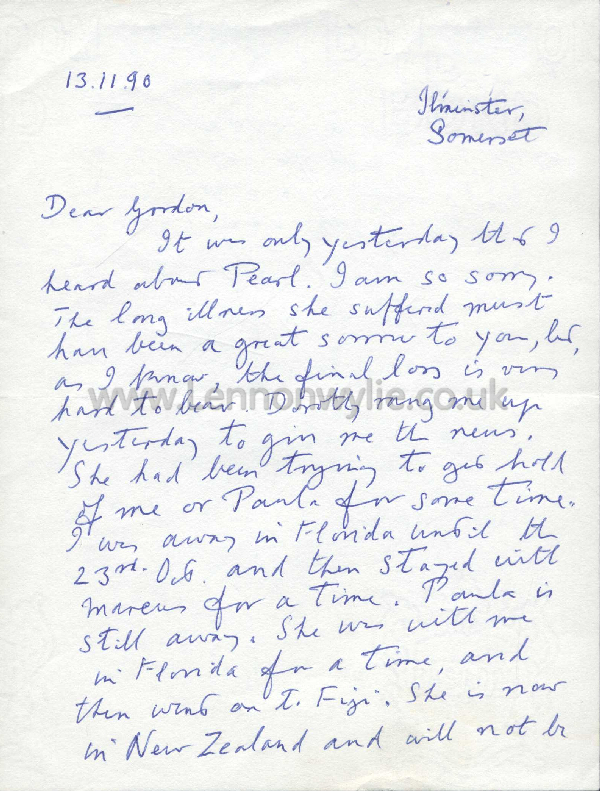 13.11.90
Ilminster,
Somerset
Dear Gordon,
It was only yesterday that I
heard about Pearl. I am so sorry.
The long illness she suffered must
have been a great sorrow to you, but,
as I know, the final loss is very
hard to bear. Dorothy rang me up
www.Lennonwylie.co.uk
yesterday to give me the news.
She had been trying to get hold
of me or Paula for some time.
I was away in Florida until the
23rd. Oct. and then stayed with
Marcus for a time. Paula is
still away. She was with me
in Florida for a time, and
then went on to Fiji. She is now
in New Zealand and will not be